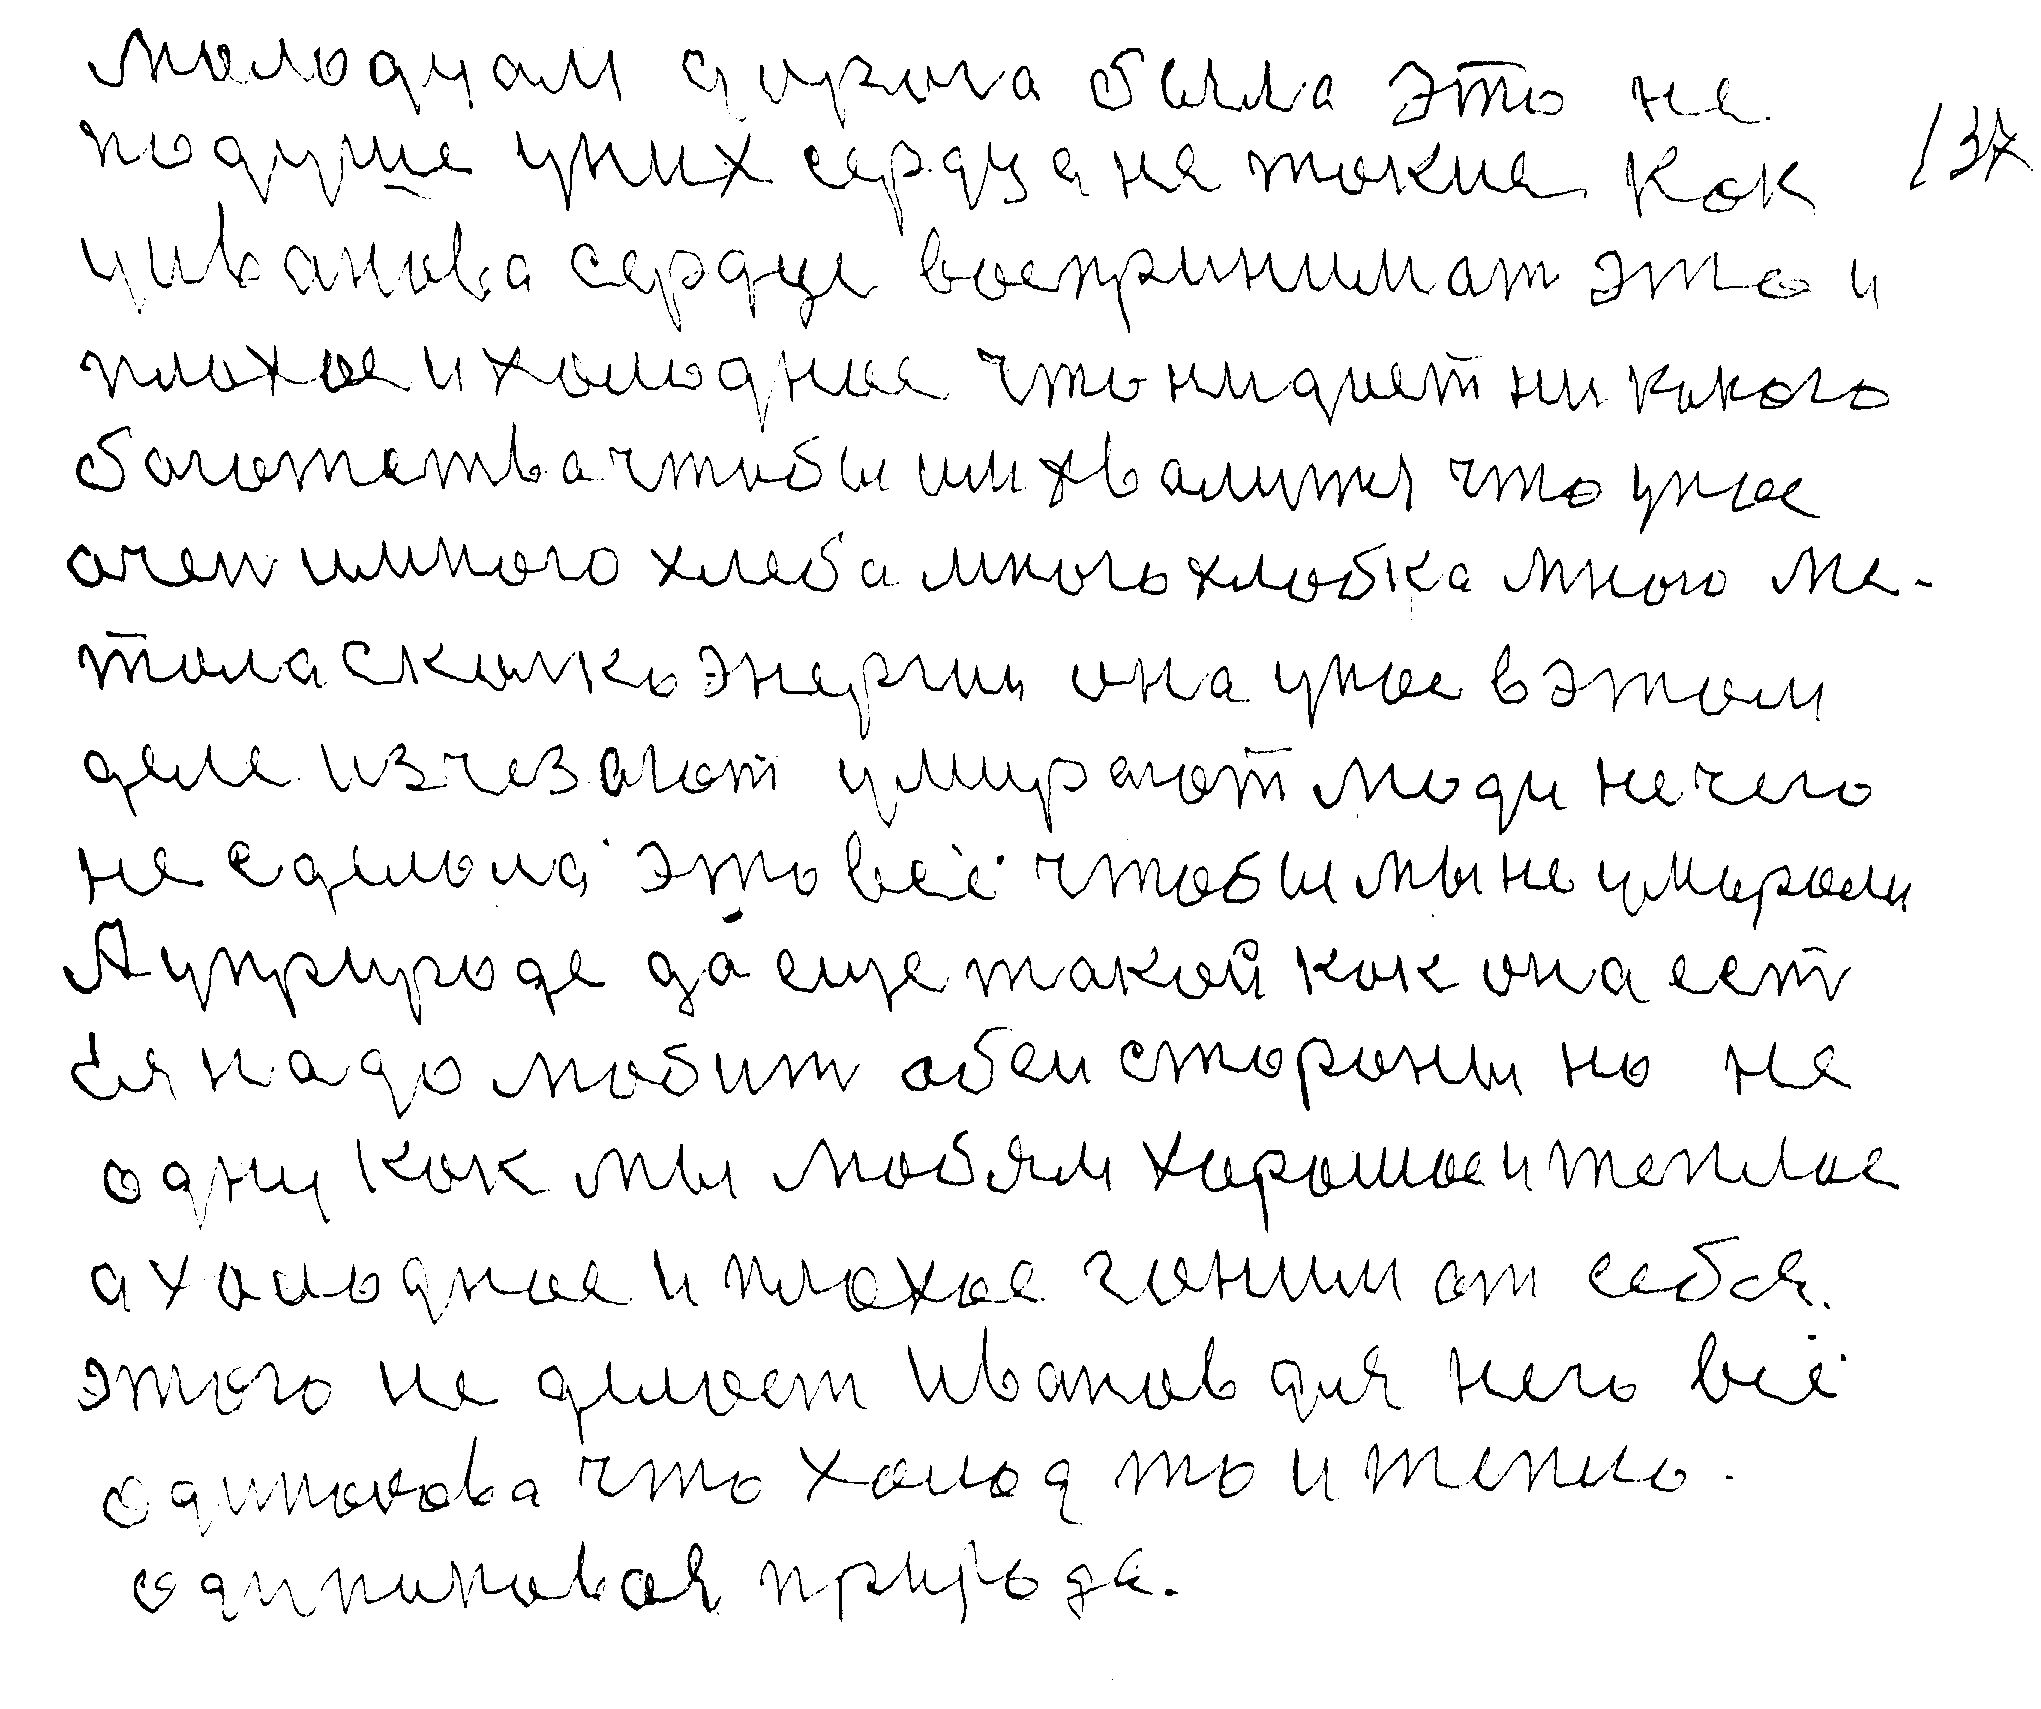 молодцам дорога была это не
подуше уних сердца не такие как 137
уиванова сердце воспринимат это и
плохое и холодное что ни дует никакого
богатства чтобы им хвалится что унае
очен имного хлеба много хлобка много ме-
тала сколько энергии она унае в этом
деле изчезают умирают люди нечего
не сделола это всё чтобы мы не умирали
А уприроде да еще такой как она ест
ея надо любит обеи стороны но не
одну как мы любям хорошое и теплое
а холодное и плохое гоним от себя.
этого не делоет Иванов для него всё
одинокова что холод то и тепло.
одинаковая природа.